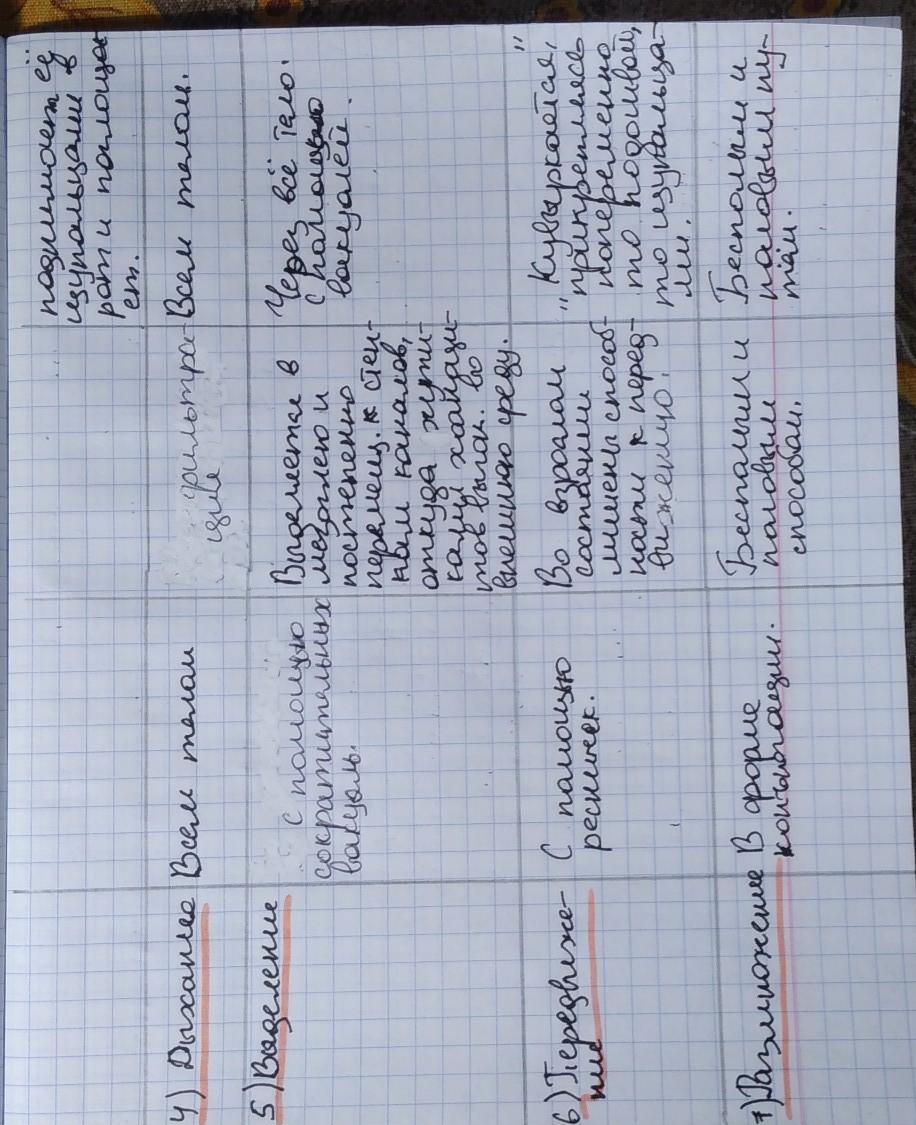 поднимает её
щупальцами в
рот и поглоща
ет.
4) Дыхание
Всем телом
фильтра-
ция
Всем телом.
5) Выделение
С помощью
сократительных
вакуоль.
Выделяется в
мезоглею и
постепенно
перемещ. к стен-
кам каналов,
откуда жгути-
в вылок. во
внешнюю среду.
Через всё тело.
С помощью
вакуолей.
6) Передвиже-
ние
С помощью
ресничек.
Во взрослом
состоянии
лишены способ-
ности к перед-
вижению.
„Кувыркается,"
прикрепляясь
попеременно
то подошвой,
то щупальца-
ми.
7) Размножение
В форме
конъюгации.
Бесполым и
половым
способом.
Бесполым и
половым пу-
тём.